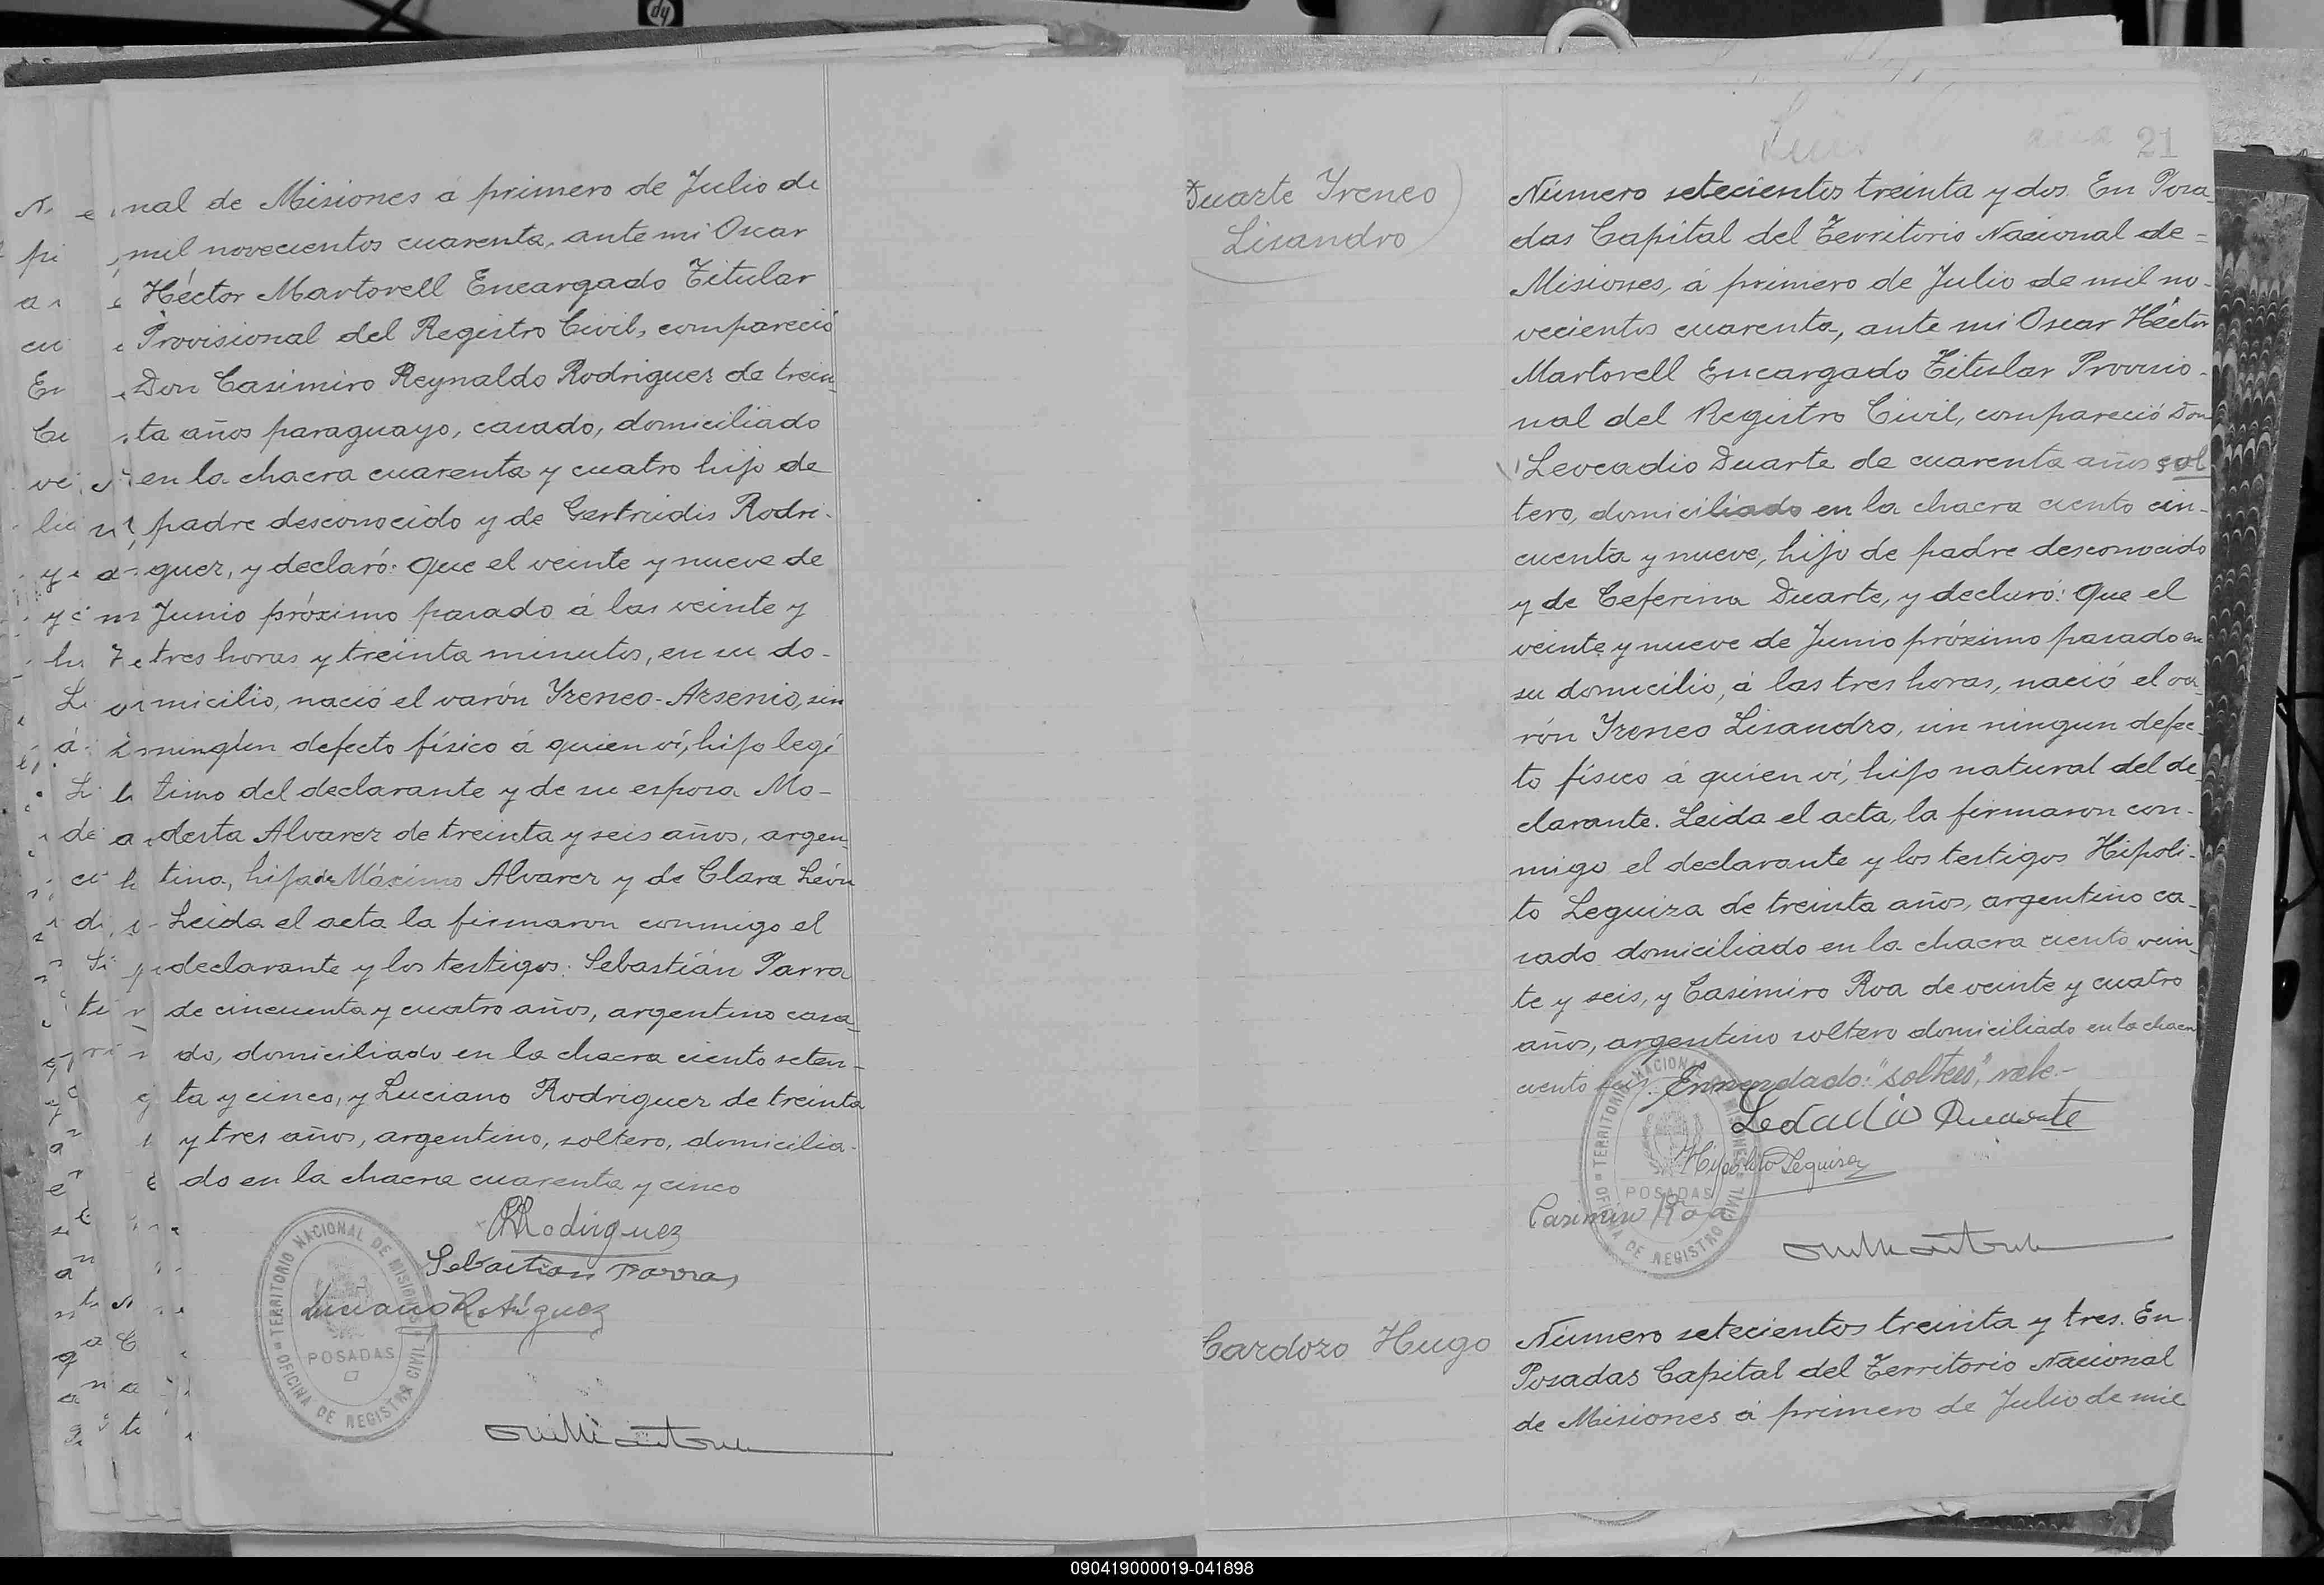 nal de Misiones á primero de Julio de
mil novecientos cuarenta, ante mi Oscar
Héctor Martorell Encargado Titular
Provisional del Registro Civil, compareció
Don Casimiro Reynaldo Rodriguez de trein_
ta años paraguayo, casado, domiciliado
en la chacra cuarenta y cuatro hijo de
padre desconocido y de Gertrudis Rodri-
guez, y declaró: Que el veinte y nueve de
Junio próximo pasado á las veinte y
tres horas y treinta minutos, en su do-
micilio, nació el varón Yreneo-Arsenio, sin
ningún defecto físico á quien ví, hijo legí
timo del declarante y de su esposa Mo-
desta Alvarez de treinta y seis años, argen
tina, hija de Máximo Alvarez y de Clara León
Leida el acta la firmaron conmigo el
declarante y los testigos: Sebastián Parra
de cincuenta y cuatro años, argentino casa_
do, domiciliado en la chacra ciento seten-
ta y cinco, y Luciano Rodriguez de treinta
y tres años, argentino, soltero, domicilia-
do en la chacra cuarenta y cinco
Rodriguez
Sebastian Parra
Luciano Rodríguez
TERRITORIO NACIONAL DE MISIONES
POSADAS
OFICINA DE REGISTRO CIVIL
21
Duarte Yreneo
Lisandro
Número setecientos treinta y dos. En Posa_
das Capital del Territorio Nacional de=
Misiones, á primero de Julio de mil no-
vecientos cuarenta, ante mi Oscar Héctor
Martorell Encargado Titular Provisio-
nal del Registro Civil, compareció Don
Leocadio Duarte de cuarenta años sol
tero, domiciliado en la chacra ciento cin-
cuenta y nueve, hijo de padre desconocido
y de Ceferina Duarte, y declaró: Que el
veinte y nueve de Junio próximo pasado en
su domicilio, á las tres horas, nació el va_
rón Yreneo Lisandro, sin ningun defec_
to físico á quien ví, hijo natural del de_
clarante. Leida el acta, la firmaron con-
migo el declarante y los testigos Hipoli-
to Leguiza de treinta años, argentino ca_
sado domiciliado en la chacra ciento vein_
te y seis, y Casimiro Roa de veinte y cuatro
años, argentino soltero domiciliado en la chacra
ciento seis. Enmendado: "soltero", vale.-
Leocadio Duarte
Hipolito Leguiza
Casimiro Roa
TERRITORIO NACIONAL DE MISIONES
POSADAS
OFICINA DE REGISTRO CIVIL
Cardozo Hugo
Número setecientos treinta y tres. En
Posadas Capital del Territorio Nacional
de Misiones á primero de Julio de mil
090419000019-041898